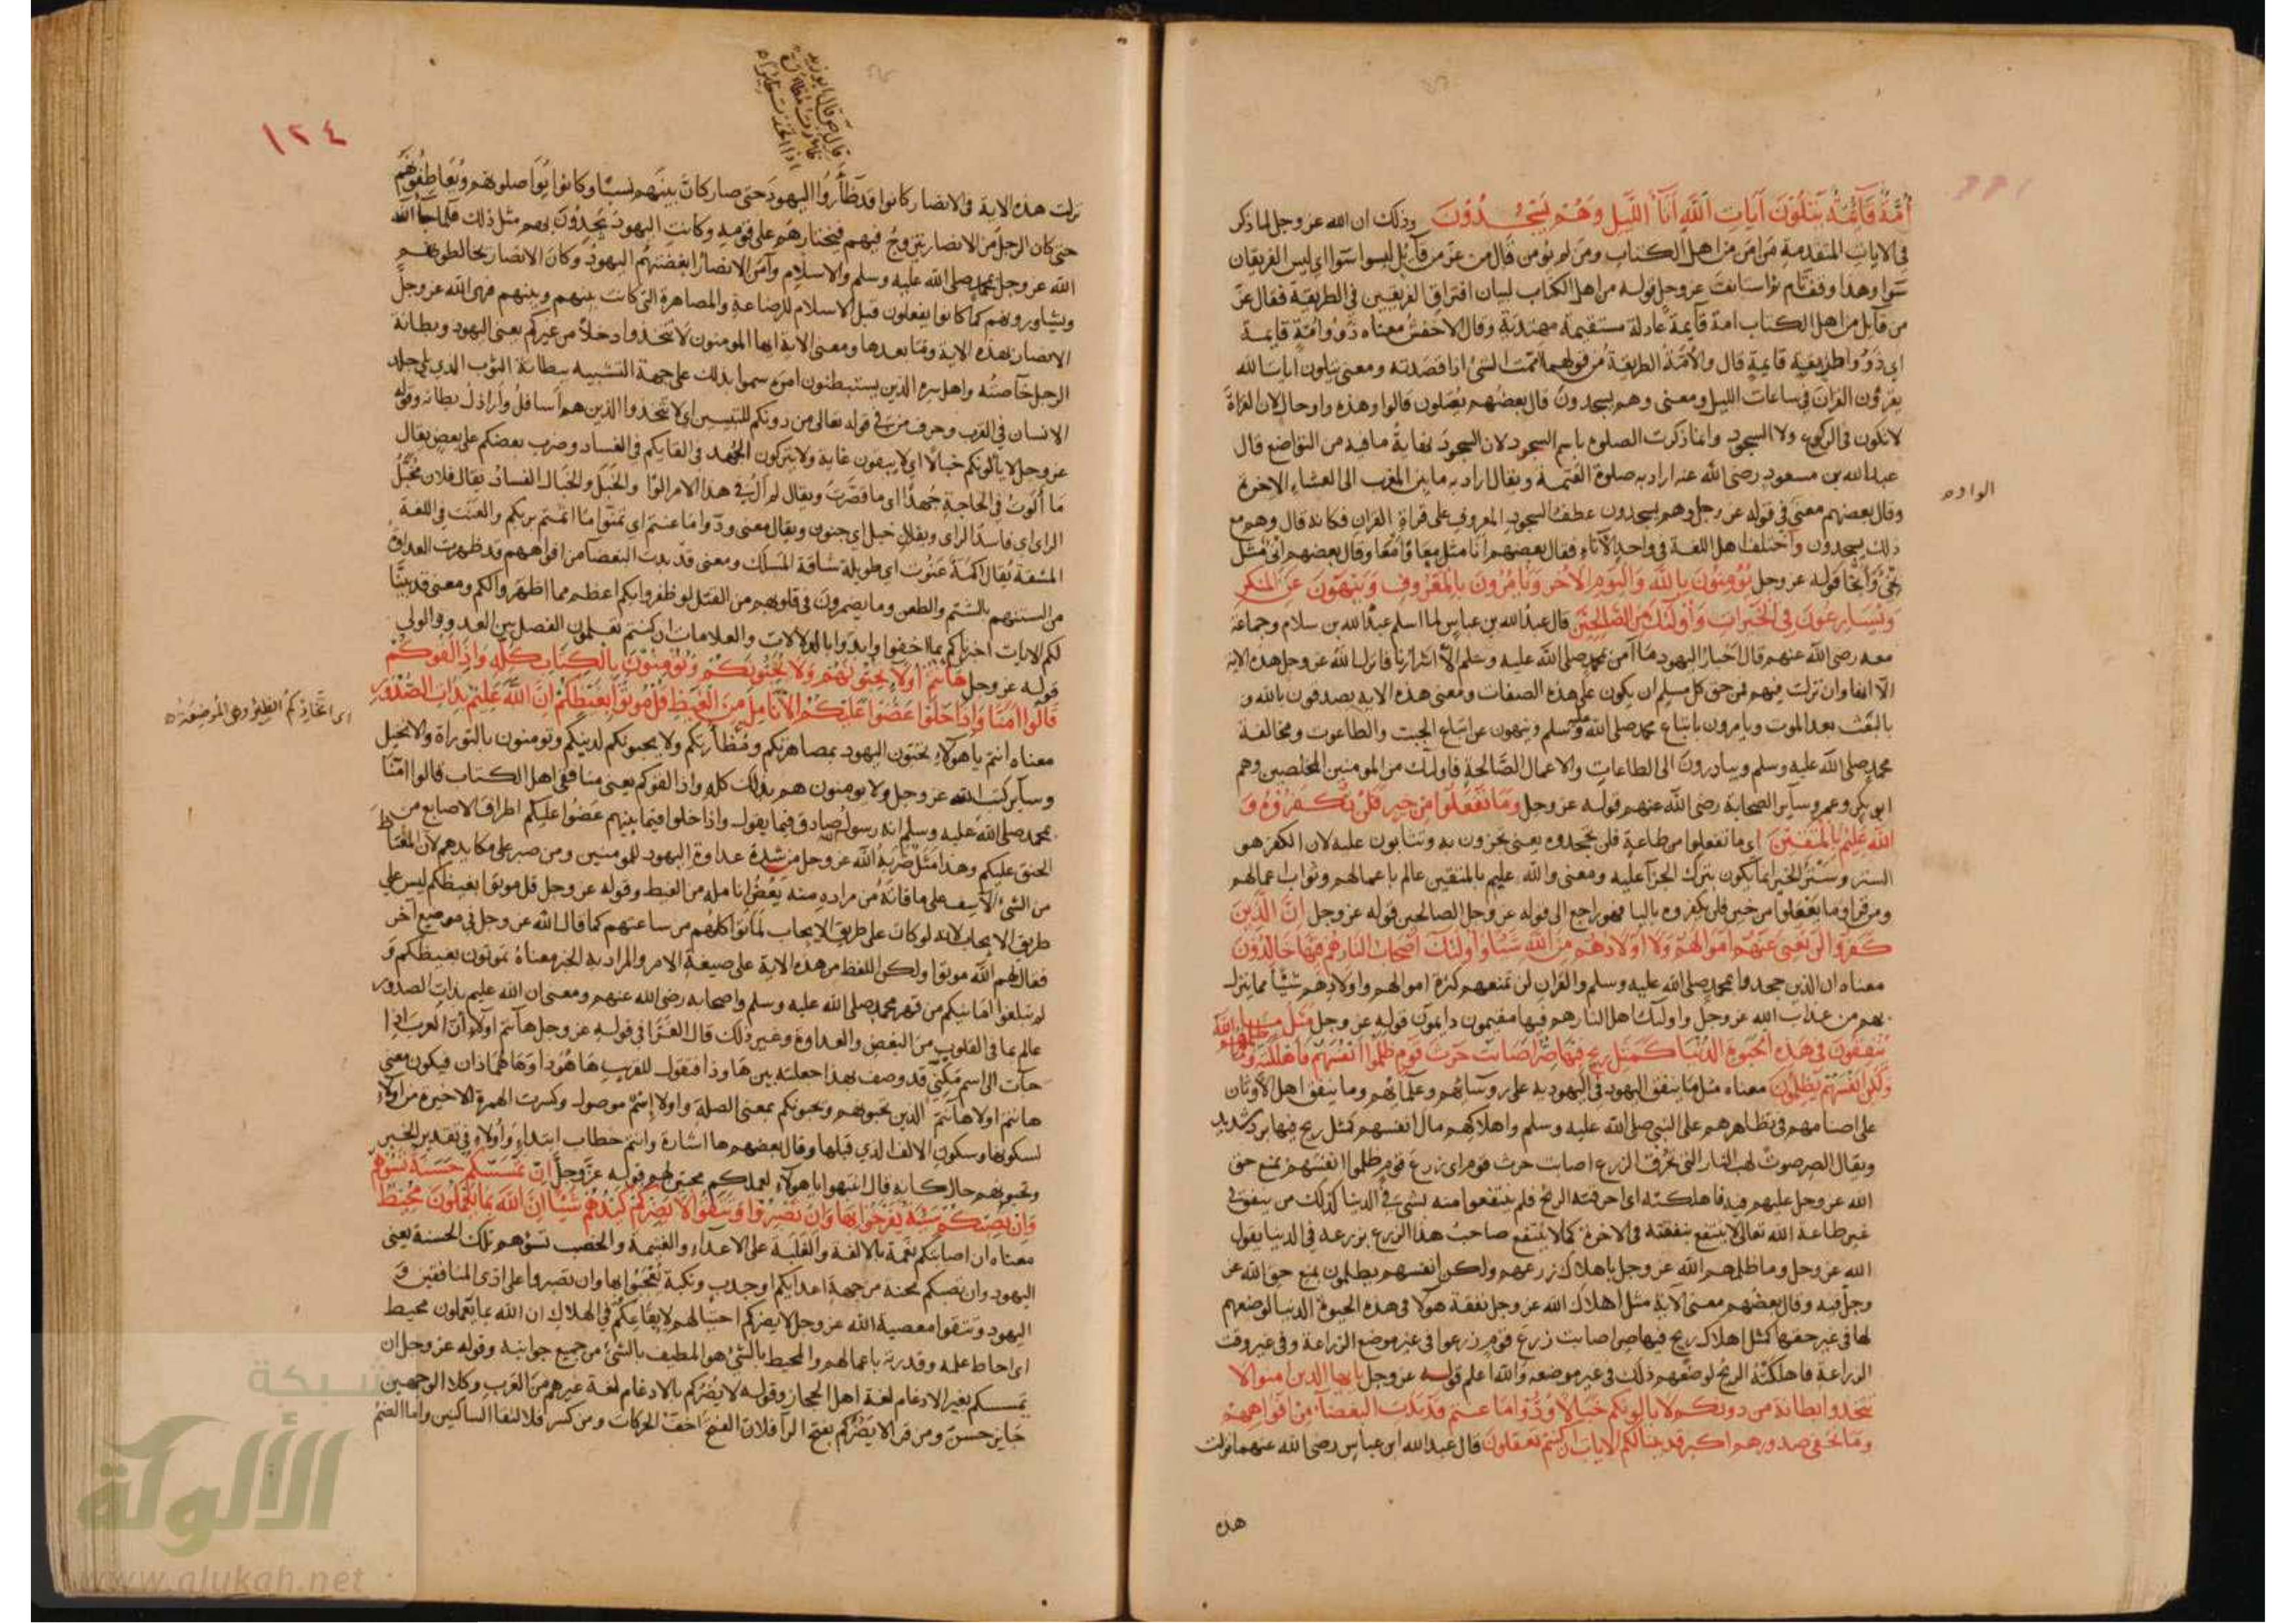 أُمَّةٌ قَآئِمَةٌ يَتْلُونَ آيَاتِ اللَّهِ آنَآءَ اللَّيْلِ وَهُمْ يَسْجُدُونَ وذلك ان الله عز وجل لما ذكر
في الايات المتقدمة من امن من اهل الكتاب ومن لم يؤمن قال من عز من قائل ليسوا سوا اي ليس الفريقان
سوا وهذا وقف تام ثم استانف عز وجل قوله من اهل الكتاب لبيان افتراق الفريقين في الطريقة فقال عز
من قايل من اهل الكتاب امة قايمة عادلة مستقيمة مهتدية وقال الاخفش معناه ذَوُو امّةٍ قايمة
اي ذَوُو طريقة قايمة قال والأمّة الطريقة من قولهم اممت الشئ اذا قصدته ومعنى يتلون ايات الله
يقرؤن القرآن في ساعات الليل ومعنى وهم يسجدون قال بعضهم يصلون قالوا وهذه واو حال لان القراة
لا تكون في الركوع ولا السجود وانما ذكرت الصلوة باسم السجود لان السجود نهاية ما فيه من التواضع قال
عبد الله بن مسعود رضى الله عنه اراد به صلوة العتمة ويقال اراد به ما بين المغرب الى العشاء الاخرة
الواو ه
وقال بعضهم معنى في قوله عز وجل وهم يسجدون عطف السجود المعروف على قراة القران فكانه قال وهم مع
ذلك يسجدون واختلف اهل اللغة في واحد الآناء فقال بعضهم انا مثل مِعًا وامعا وقال بعضهم اِنْيٌ مثل
نحي وأنحا قوله عز وجل يُؤْمِنُونَ بِاللَّهِ وَالْيَوْمِ الْآخِرِ وَيَأْمُرُونَ بِالْمَعْرُوفِ وَيَنْهَوْنَ عَنِ الْمُنْكَرِ
وَيُسَارِعُونَ فِي الْخَيْرَاتِ وَأُولَئِكَ مِنَ الصَّالِحِينَ قال عبد الله بن عباس لما اسلم عبد الله بن سلام وجماعة
معه رضى الله عنهم قال احبار اليهود ما آمن بمحمد صلى الله عليه وسلم الا اشرارنا فانزل الله عز وجل هذه الاية
الا انها وان نزلت فيهم فمن حق كل مسلم ان يكون على هذه الصفات ومعنى هذه الاية يصدقون بالله و
بالبعث بعد الموت ويامرون باتباع محمد صلى الله عليه وسلم وينهون عن اتباع الجبت والطاغوت ومخالفة
محمد صلى الله عليه وسلم ويبادرون الى الطاعات والاعمال الصالحة فاوليك من المومنين المخلصين وهم
ابو بكر وعمر وسآير الصحابة رضى الله عنهم قوله عز وجل وَمَا تَفْعَلُوا مِنْ خَيْرٍ فَلَنْ تُكْفَرُوهُ وَ
اللَّهُ عَلِيمٌ بِالْمُتَّقِينَ اي ما تفعلوا من طاعة فلن تجحدوه يعنى تجزون به وتثابون عليه لان الكفر هو
الستر وستر الخير انما يكون بترك الجزآ عليه ومعنى والله عليم بالمتقين عالم باعمالهم وثواب اعمالهم
ومن قرا وما يفعلوا من خير فلن يكفروه باليا فهو راجع الى قوله عز وجل الصالحين قوله عز وجل إِنَّ الَّذِينَ
كَفَرُوا لَنْ تُغْنِيَ عَنْهُمْ أَمْوَالُهُمْ وَلَا أَوْلَادُهُمْ مِنَ اللَّهِ شَيْئًا وَأُولَئِكَ أَصْحَابُ النَّارِ هُمْ فِيهَا خَالِدُونَ
معناه ان الذين جحدوا بمحمد صلى الله عليه وسلم والقرآن لن تمنعهم كثرة اموالهم واولادهم شيئا مما ينزل
بهم من عذاب الله عز وجل واوليك اهل النار هم فيها مقيمون دايمون قوله عز وجل مَثَلُ مَا
يُنْفِقُونَ فِي هَذِهِ الْحَيَوةِ الدُّنْيَا كَمَثَلِ رِيحٍ فِيهَا صِرٌّ أَصَابَتْ حَرْثَ قَوْمٍ ظَلَمُوا أَنْفُسَهُمْ فَأَهْلَكَتْهُ وَمَا ظَلَمَهُمُ اللَّهُ
وَلَكِنْ أَنْفُسَهُمْ يَظْلِمُونَ معناه مثل ما ينفق اليهود في اليهودية على روسائهم وعلمائهم وما ينفق اهل الاوثان
على اصنامهم في تظاهرهم على النبي صلى الله عليه وسلم واهلاكهم مال انفسهم كمثل ريح فيها برد شديد
ويقال الصر صوت لهب النار التي تحرق الزرع اصابت حرث قوم اي زرع قوم ظلموا انفسهم بمنع حق
الله عز وجل عليهم فيه فاهلكته اي احرقته الريح فلم ينتفعوا منه بشئ في الدنيا كذلك من ينفق في
غير طاعة الله تعالى لا ينتفع بنفقته في الاخرة كما لا ينتفع صاحب هذا الزرع بزرعه في الدنيا يقول
الله عز وجل وما ظلمهم الله عز وجل باهلاك زرعهم ولكن انفسهم يظلمون بمنع حق الله عز
وجل فيه وقال بعضهم معنى الآية مثل اهلاك الله عز وجل نفقة هولا في هذه الحيوة الدنيا لوضعهم
لها في غير حقها كمثل اهلاك ريح فيها صر اصابت زرع قوم زرعوا في غير موضع الزراعة وفي غير وقت
الزراعة فاهلكته الريح لوضعهم ذلك في غير موضعه والله اعلم قوله عز وجل يا ايها الذين امنوا لا
تتخذوا بطانة من دونكم لا يالونكم خبالا ودوا ما عنتم قد بدت البغضآء من افواههم
وما تخفى صدورهم اكبر قد بينا لكم الايات ان كنتم تعقلون قال عبد الله ابن عباس رضى الله عنهما نزلت
هذه
١٢٤
نزلت هذه الاية في الانصار كانوا قد ظأروا اليهود حتى صار كان بينهم نسبًا وكانوا يواصلونهم ويعاطفونهم
حتى كان الرجل من الانصار يتزوج فيهم فيختارهم على قومه وكانت اليهود يجدون بهم مثل ذلك فلما جآ الله
الله عز وجل بمحمد صلى الله عليه وسلم والاسلام وآمن الانصار ابغضتهم اليهود وكان الانصار يخالطونهم
ويشاورونهم كما كانوا يفعلون قبل الاسلام للرضاعة والمصاهرة التي كانت بينهم وبينهم فنهى الله عز وجل
الانصار بهذه الاية وما بعدها ومعنى الاية ايها المومنون لا تتخذوا دخلاً من غيركم يعنى اليهود وبطانة
الرجل خاصته واهل سره الذين يستبطنون امره سموا بذلك على جهة التشبيه ببطانة الثوب الذي يلي جلد
الانسان في القرب وحرف من في قوله تعالى من دونكم للتبيين اي لا تتخذوا الذين هم اسافل واراذل بطانة وقوله
عز وجل لا يألونكم خبالًا اي لا يبقون غاية ولا يتركون الجهد في القايكم في الفساد وضرب بعضكم على بعض يقال
ما ألوت في الحاجة جهدًا اي ما قصرت ويقال لم آل في هذا الامر الوًا والخبل والخبال الفساد يقال فلان مخبل
الراى اي فاسد الراى ويقال خبل اي جنون ويقال معنى ودّوا ما عنتم اي تمنوا ما اثمتم بربكم والعنت في اللغة
المشقة يقال اكمة عنوت اي طويلة شاقة المسلك ومعنى قد بدت البغضآ من افواههم قد ظهرت العداوة
من السنتهم بالشتم والطعن وما يضمرون في قلوبهم من القتل لو ظفروا بكم اعظم مما اظهروا لكم ومعنى قد بينّا
لكم الايات اخبرناكم بما اخفوا وابدوا بالدلالات والعلامات ان كنتم تعلمون الفصل بين العدو والولي
قوله عز وجل هَآ أَنْتُمْ أُولَآءِ تُحِبُّونَهُمْ وَلَا يُحِبُّونَكُمْ وَتُؤْمِنُونَ بِالْكِتَابِ كُلِّهِ وَإِذَا لَقُوكُمْ
قَالُوا آمَنَّا وَإِذَا خَلَوْا عَضُّوا عَلَيْكُمُ الْأَنَامِلَ مِنَ الْغَيْظِ قُلْ مُوتُوا بِغَيْظِكُمْ إِنَّ اللَّهَ عَلِيمٌ بِذَاتِ الصُّدُورِ
معناه انتم يا هولاء تحبون اليهود بمصاهرتكم ومظأرتكم ولا يحبونكم لدينكم وتومنون بالتوراة والانجيل
وسآير كتب الله عز وجل ولا يومنون هم بذلك كله واذا لقوكم يعنى منافقى اهل الكتاب قالوا امنّا
بمحمد صلى الله عليه وسلم انه رسول صادق فيما يقول واذا خلوا فيما بينهم عضوا عليكم اطراف الاصابع من
الحنق عليكم وهذا مثل ضربه الله عز وجل من شدة عداوة اليهود للمومنين ومن صبر على مكايدهم لان المغتاظ
من الشئ الآسف على ما فاته من مراده منه يعض انامله من الغيظ وقوله عز وجل قل موتوا بغيظكم ليس على
طريق الايجاب لانه لو كان على طريق الايجاب لماتوا كلهم من ساعتهم كما قال الله عز وجل في موضع آخر
فقال لهم الله موتوا ولكن اللفظ من هذه الاية على صيغة الامر والمراد به الخبر معناه تموتون بغيظكم و
لم تبلغوا امانيكم من قهر محمد صلى الله عليه وسلم واصحابه رضى الله عنهم ومعنى ان الله عليم بذات الصدور
عالم بما في القلوب من البغض والعداوة وغير ذلك قال الفرّا في قوله عز وجل هآ انتم اولاء ان العرب اذا
جآت الى اسم مكنّي قد وصف بهذا جعلته بين ها وذا فتقول للقريب ها هو ذا وها هما ذان فيكون معنى
ها انتم اولا هآ انتم الذين تحبونهم ويحبونكم بمعنى الصلة واولا إسم موصول وكسرت الهمزة الاخيرة من اولاء
لسكونها وسكون الالف الذي قبلها وقال بعضهم ها اشارة وانتم خطاب ابتداء وأولاء في تقدير الخبر
وتحبونهم حال كانه قال انتبهوا يا هولاء لعملكم محبتى لهم قوله عز وجل إِنْ تَمْسَسْكُمْ حَسَنَةٌ تَسُؤْهُمْ
وَإِنْ تُصِبْكُمْ سَيِّئَةٌ يَفْرَحُوا بِهَا وَإِنْ تَصْبِرُوا وَتَتَّقُوا لَا يَضُرُّكُمْ كَيْدُهُمْ شَيْئًا إِنَّ اللَّهَ بِمَا يَعْمَلُونَ مُحِيطٌ
معناه ان اصابتكم نعمة بالالفة والغلبة على الاعداء والغنيمة والخصب تسؤهم تلك الحسنة يعنى
اليهود وان تصبكم محنة من جهة اعدايكم او جدب ونكبة يعجبوا بها وان تصبروا على اذى المنافقين و
اليهود وتتقوا معصية الله عز وجل لا يضركم احتيالهم لايقاعكم في الهلاك ان الله بما يعملون محيط
اى احاط علمه وقدرته باعمالهم والمحيط بالشئ هو المطيف بالشئ من جميع جوانبه وقوله عز وجل ان
تمسسكم بغير الادغام لغة اهل الحجاز وقوله لا يضركم بالادغام لغة غيرهم من العرب وكلا الوجهين
جايز حسن ومن قرا لا يضركم بفتح الرآ فلان الفتح اخف الحركات ومن كسر فلالتقا الساكنين واما الضم
شبكة
الألوكة
www.alukah.net